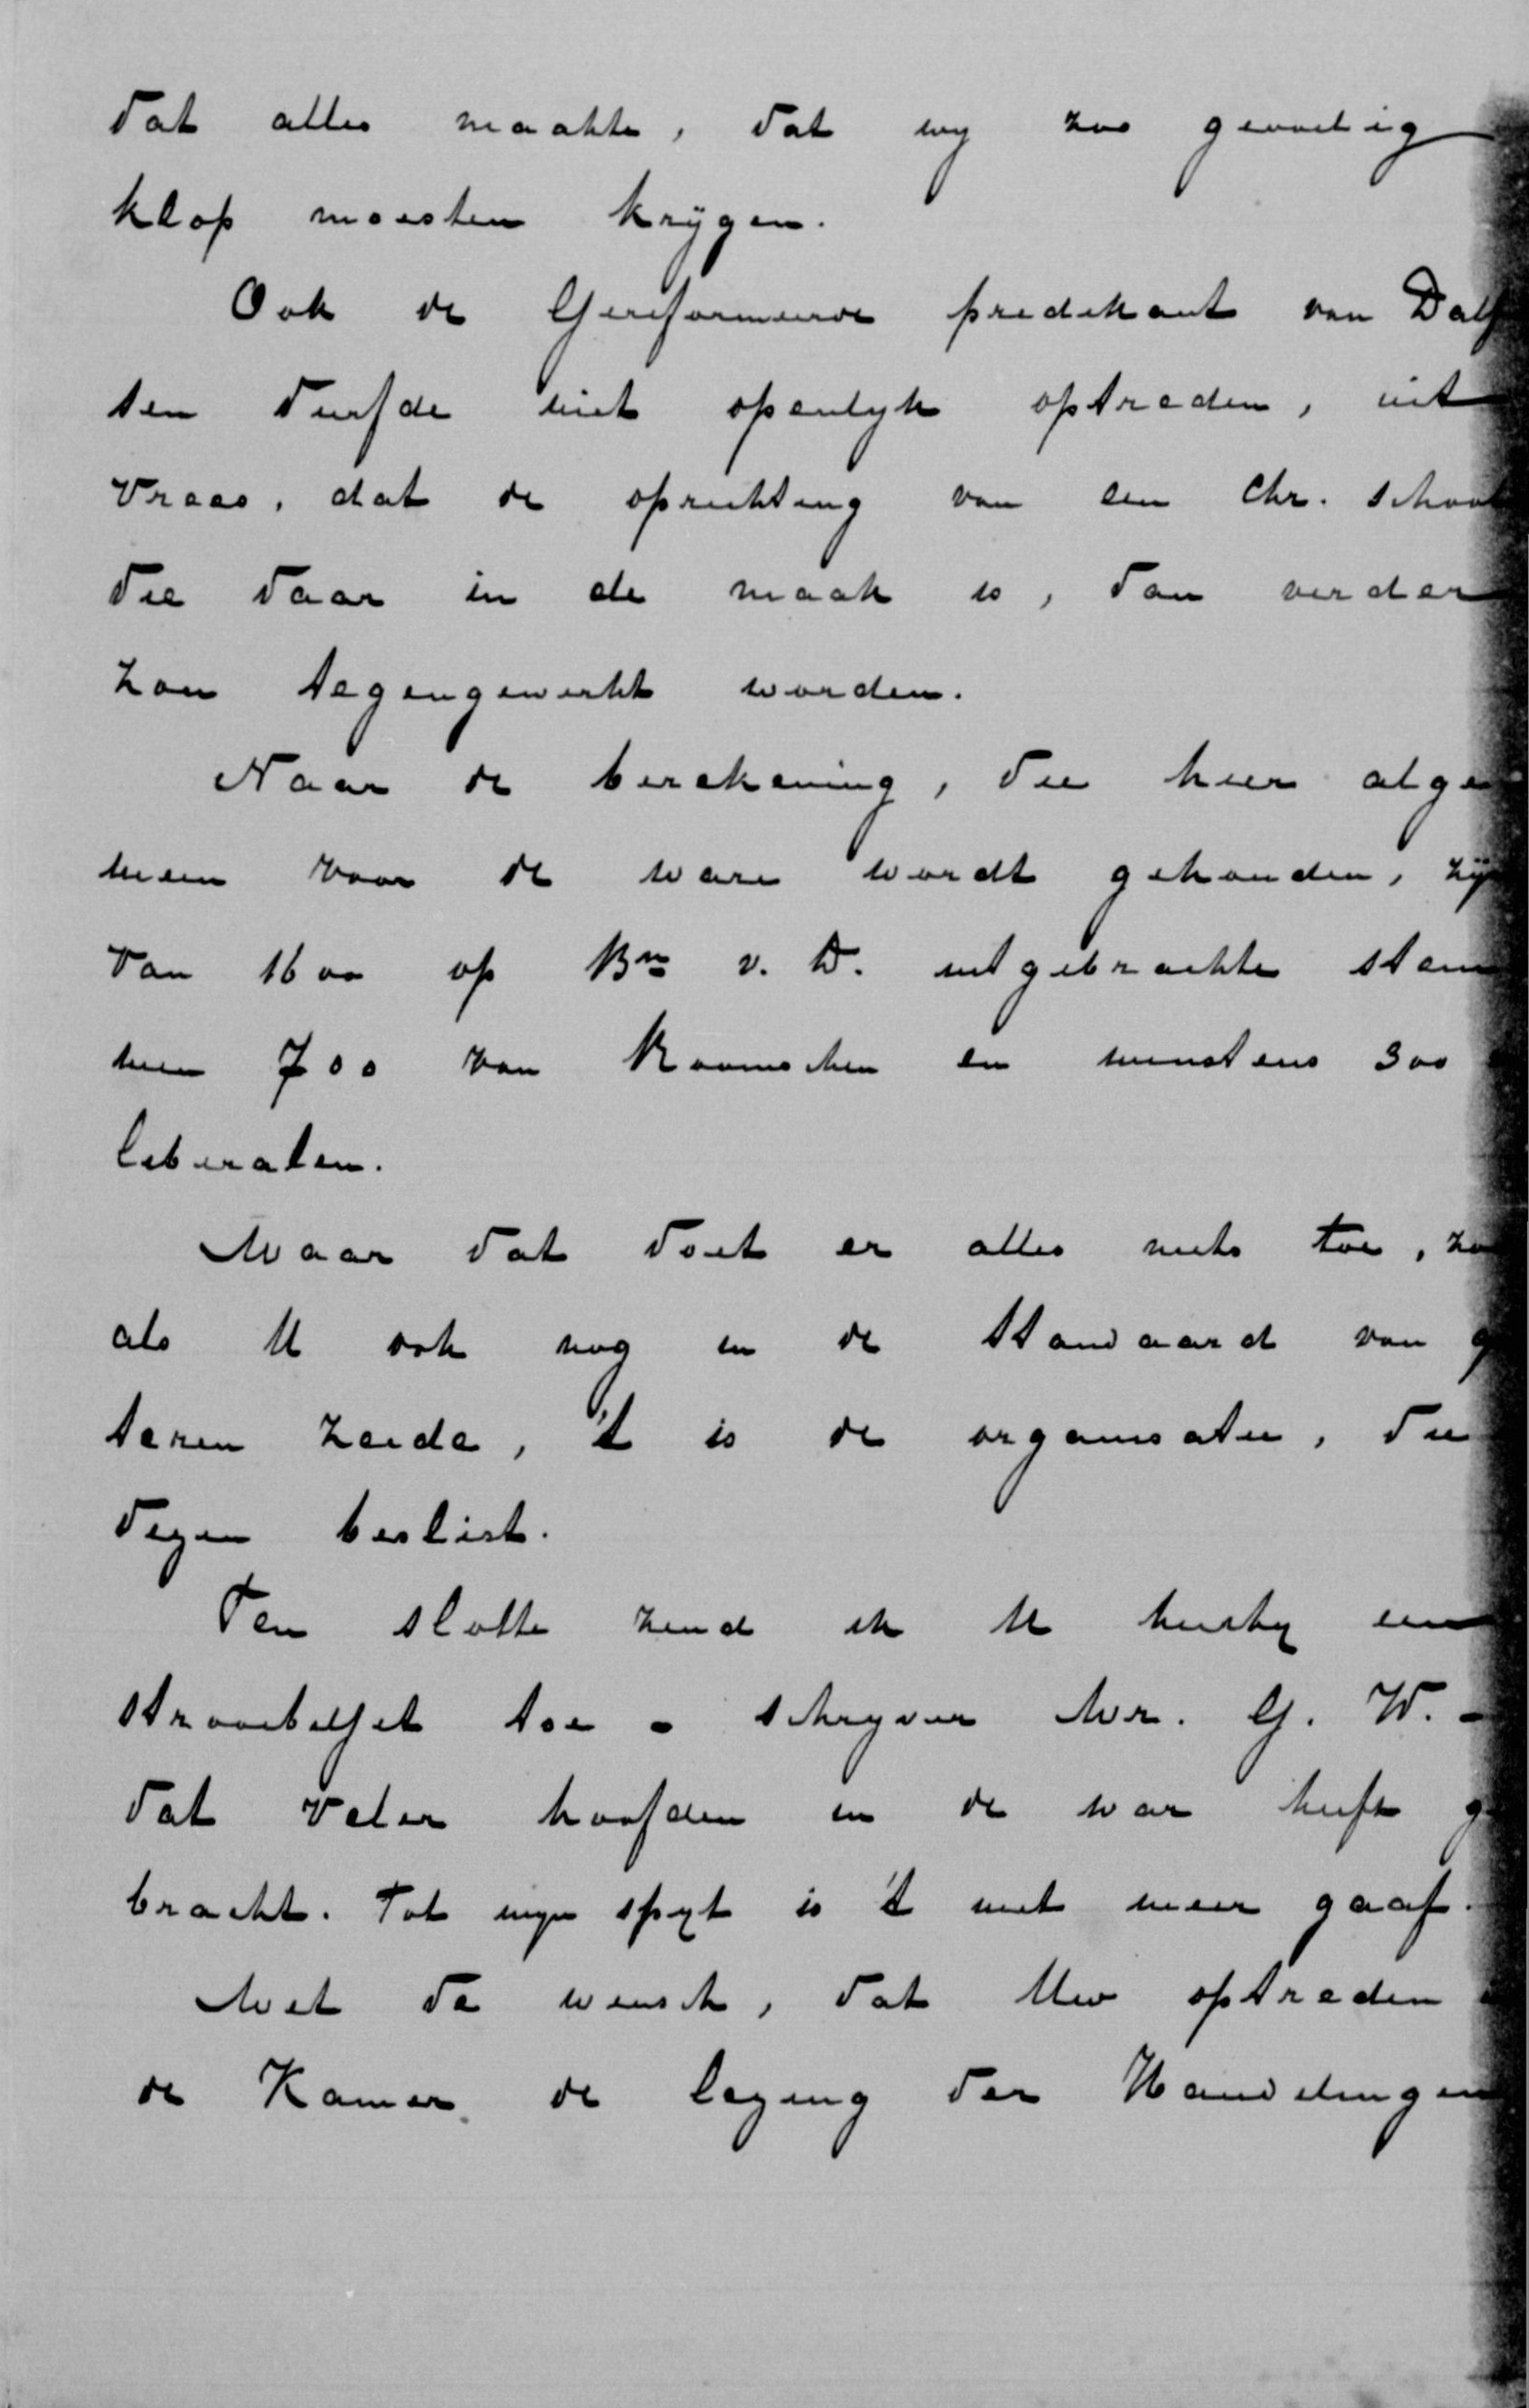 Dat alles maakte, dat wy zoo geweldig
klop moesten krijgen.
Ook de Gereformeerde predikant van Dalf
sen durfde niet openlyk optreden, uit
vrees, dat de oprichting van een Chr. school
die daar in de maak is, dan verder
zou tegengewerkt worden.
Naar de berekening, die hier alge
meen voor de ware wordt gehouden, zijn
van 1600 op Bn v. D. uitgebrachte stem
men 700 van Roomschen en minstens 300
liberalen.
Maar dat doet er alles niets toe, zo
als U ook nog in de Standaard van g
teren zeide, 't is de organisatie, die
degen beslist.
Ten slotte zend ik U hierby een
strooibiljet toe - schryver Mr. G. W. -
dat veler hoofden in de war heeft ge
bracht. Tot myn spyt is 't niet meer gaaf.
Met de wensch, dat Uw optreden
de Kamer de lezing der Handelingen